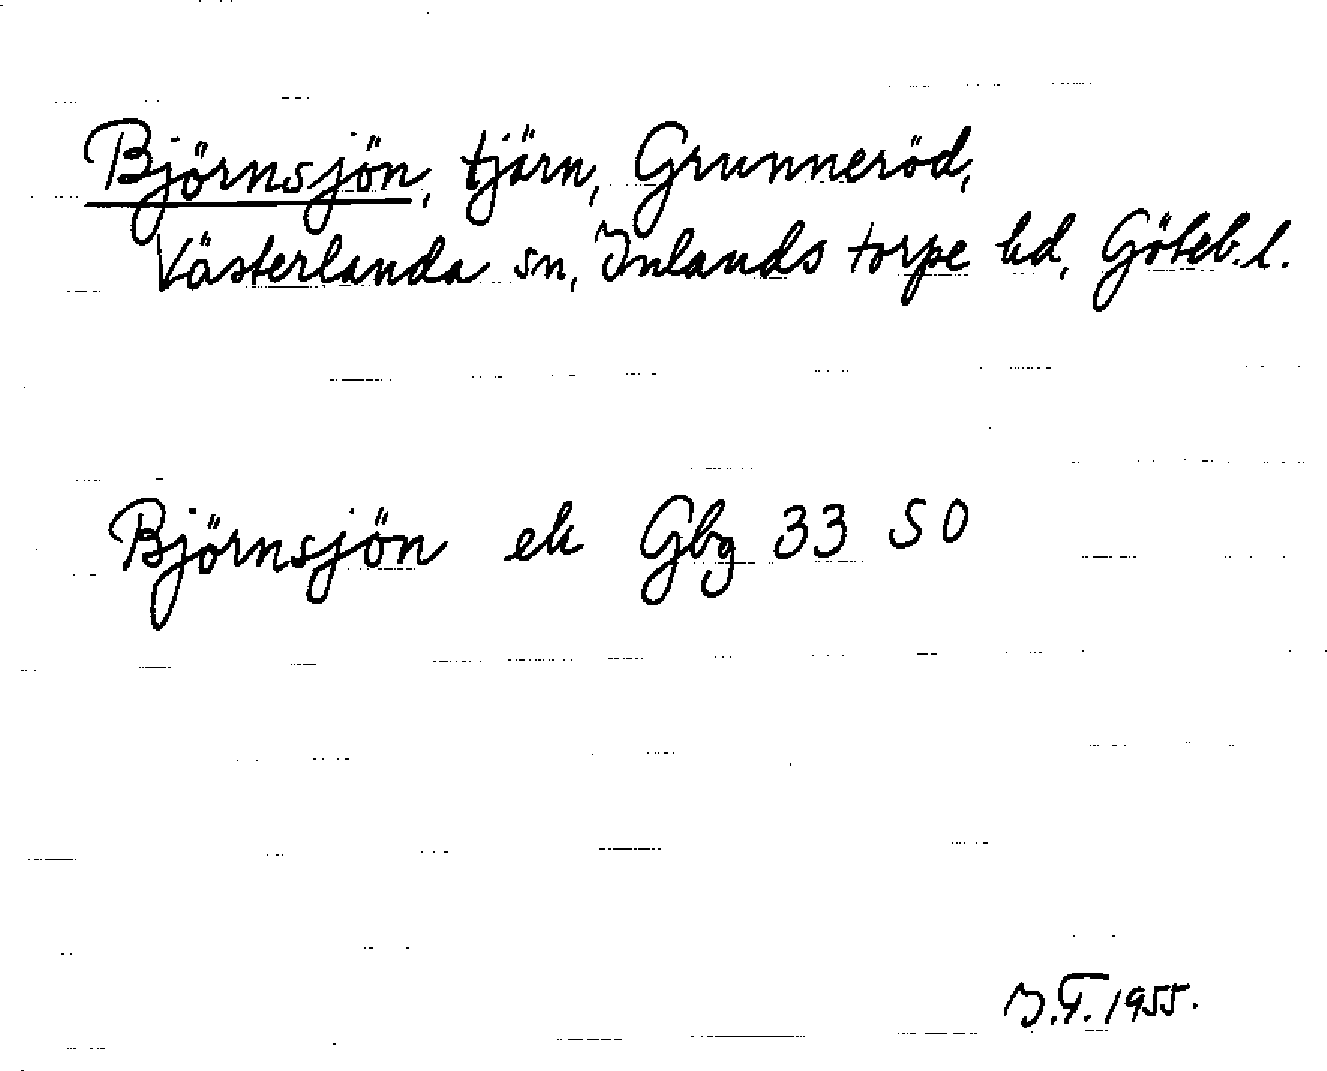 Björnsjön, tjärn, Grunneröd,
Västerlanda sn, Inlands torpe hd, Göteb. l.
Björnsjön ek Gbg 33 SO
I.F. 1955.